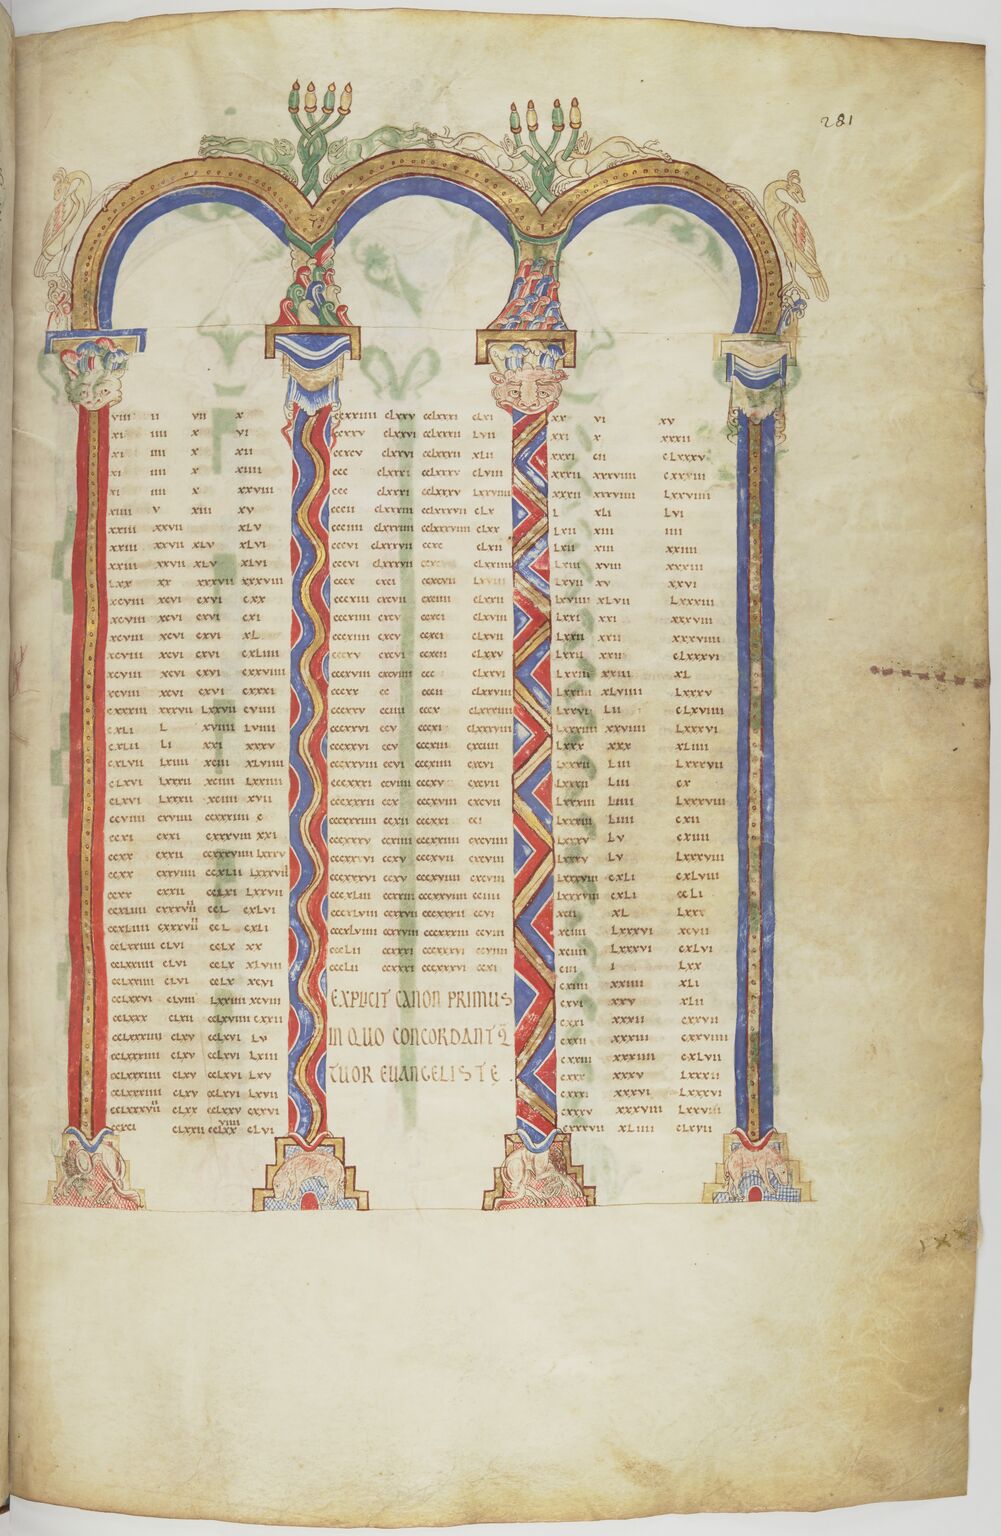 281
viii ii vii x
xi iiii x vi
xi iiii x xii
xi iiii x xiiii
xi iiii x xxviii
xiiii v xiii xv
xxiii xxvii xLv
xxiii xxvii xLv xLvi
xxiii xxvii xLv xLvi
Lxx xx xxxvii xxxviii
xcviii xcvi cxvi cxx
xcviii xcvi cxvi cxi
xcviii xcvi cxvi xL
xcviii xcvi cxvi cxLiiii
xcviii xcvi cxvi cxxviiii
xcviii xcvi cxvi cxxxi
cxxxiii xxxvii Lxxvii cviiii
cxLi L xviiii Lviiii
cxLii Li xxi xxxv
cxLvii Lxiiii xciii xLviiii
cLxvi Lxxxii xciiii Lxxiiii
cLxvi Lxxxii xciiii xvii
ccviiii cxviiii ccxxxiiii c
ccxi cxxi ccxxxviii xxi
ccxx cxxii ccxxxviiii Lxxxv
ccxx cxxviiii ccxLii Lxxxvii
ccxx cxxii ccLxi Lxxvii
ccxLiiii cxxxvii ccL cxLvi
ccxLiiii cxxxvii ccL cxLi
ccLxxiiii cLvi ccLx xx
ccLxxiiii cLvi ccLx xLviii
ccLxxiiii cLvi ccLx xcvi
ccLxxvi cLviii Lxxiiii xcviii
ccLxxx cLxii ccLxviiii cxxii
ccLxxxiiii cLxv ccLxvi Lv
ccLxxxiiii cLxv ccLxvi Lxiii
ccLxxxiiii cLxv ccLxvi Lxv
ccLxxxiiii cLxv ccLxvi Lxvii
ccLxxxvii cLxx ccLxxv cxxvi
ccxci cLxxii ccLxxviiii cLvi
ccxxiiii cLxxv ccLxxxi cLxi
ccxcv cLxxvi ccLxxxii Lvii
ccxcv cLxxvi ccLxxxii xLii
ccc cLxxxi ccLxxxv cLviii
ccc cLxxxi ccLxxxv Lxxviiii
cccii cLxxxiii ccLxxxvii cLx
ccciiii cLxxxiiii ccLxxxviiii cLxx
cccvi cLxxxvii ccxc cLxii
cccvi cLxxxvii ccxc cLxxiiii
cccx cxci ccxcvii Lxviiii
cccxiii cxcvii ccxciiii cLxxii
cccxiiii cxcv ccxci cLxvi
cccxiiii cxcv ccxci cLxvii
cccxv cxcvi ccxcii cLxxv
cccxviii cxcviiii ccc cLxxvi
cccxx cc cccii cLxxviiii
cccxxv cciiii cccx cLxxxiiii
cccxxvi ccv cccxi cLxxxviii
cccxxvi ccv cccxiii cxciiii
cccxxviii ccvi cccxiiii cxcvi
cccxxxi ccviiii cccxv cxcvii
cccxxxii ccx cccxviii cxcvii
cccxxxiiii ccxii cccxxi cci
cccxxxv ccxiiii cccxxiiii cxcviiii
cccxxxvi ccxv cccxvii cxcviii
cccxxxvi ccxv cccxviiii cxcviii
cccxLiii ccxxiii cccxxviiii cciiii
cccxLviii ccxxvii cccxxxii ccvi
cccxLviiii ccxxviii cccxxxiii ccviii
cccLii ccxxxi cccxxxvi ccviiii
cccLii ccxxxi cccxxxvi ccxi
EXPLICIT CANON PRIMUS
IN QUO CONCORDANT Q̄
TUOR EUANGELISTĘ .
xx vi xv
xxi x xxxii
xxxi cii cLxxxv
xxxii xxxviiii cxxviii
xxxii xxxviiii Lxxviiii
L xLi Lvi
Lxii xiii iiii
Lxii xiii xxiiii
Lxiii xviii xxxiii
Lxvii xv xxvi
Lxviiii xLvii Lxxxiii
Lxxi xxi xxxviii
Lxxii xxii xxxviiii
Lxxii xxii cLxxxvi
Lxxiii xxiii xL
Lxxiiii xLviiii Lxxxv
Lxxvi Lii cLxviiii
Lxxviiii xxviiii Lxxxvi
Lxxx xxx xLiiii
Lxxxii Liii Lxxxvii
Lxxxii Liii cx
Lxxxiii Liiii Lxxxviii
Lxxxiii Liiii cxii
Lxxxv Lv cxiiii
Lxxxv Lv Lxxxviii
Lxxxviii cxLi cxLviii
Lxxxviii cxLi ccLi
xcii xL Lxxx
xciiii Lxxxvi xcvii
xciiii Lxxxvi cxLvi
ciii i Lxx
cxiiii xxiiii xLi
cxvi xxv xLii
cxxi xxxii cxxvii
cxxii xxxiii cxxviiii
cxxiii xxxiiii cxLvii
cxxx xxxv Lxxxii
cxxxi xxxvi Lxxxvi
cxxxv xxxviii Lxxviii
cxxxvii xLiiii cLxvii